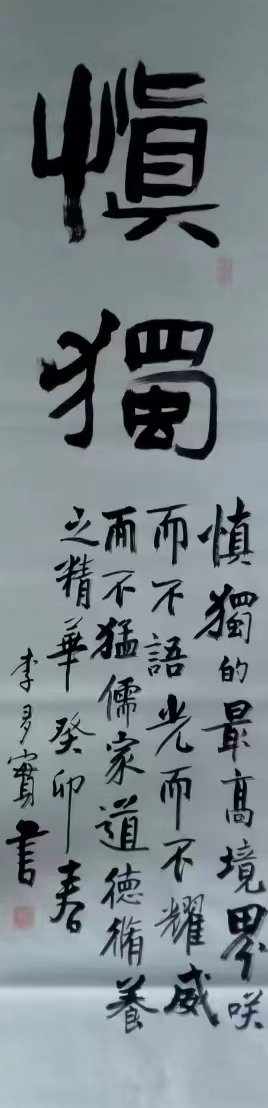 慎獨
慎獨的最高境界咲
而不語光而不耀威
而不猛儒家道德脩養
之精華癸卯春
李多寶書